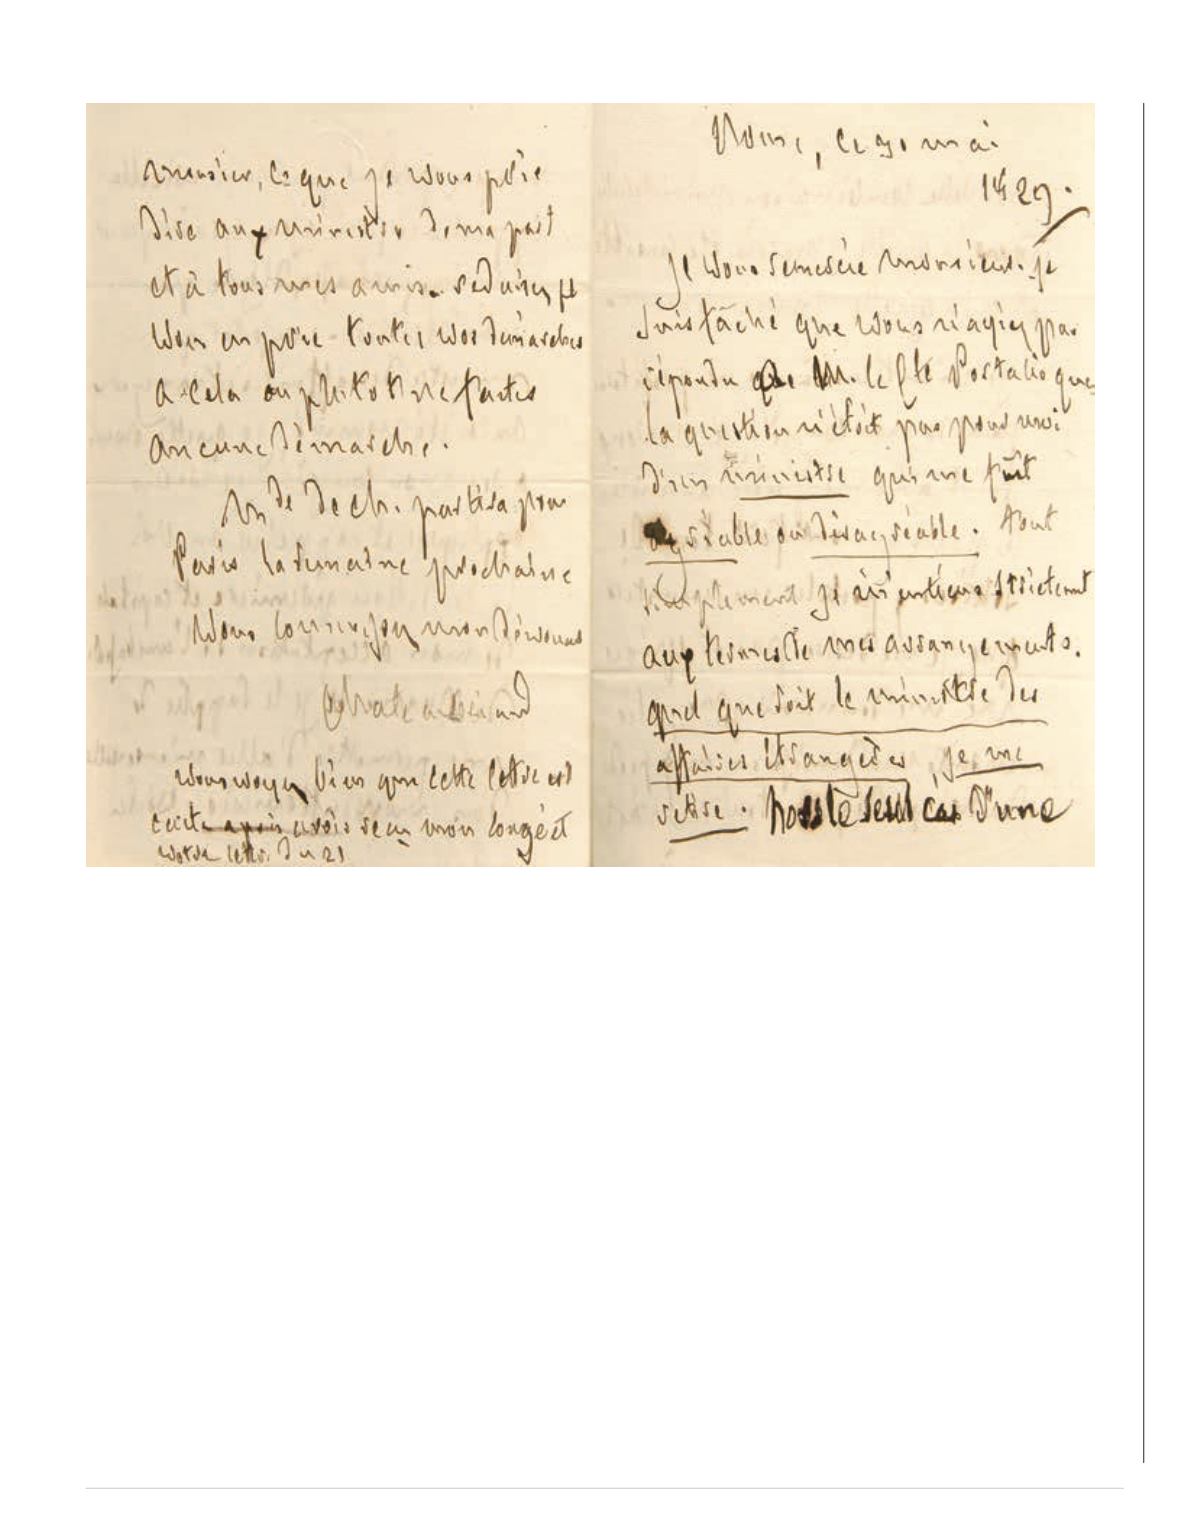 Rome, ce mai
1829.
Je vous remercie monsieur. Je
suis fâché que vous n'ayiez pas
répondu à M. le Cte Portalis que
la question n'étoit pas pour moi
d'un ministre qui me fût
agréable ou désagréable. Tout
simplement je m'en tiens strictement
aux termes de mes arrangements.
quel que soit le ministre des
affaires étrangères, je me
retire. hors le seul cas d'une
Monsieur, ce que je vous prie
dire aux ministres de ma part
et à tous mes amis. réduisez je
vous en prie toutes vos démarches
à cela ou plutôt ne faites
aucune démarche.
Mde de Ch. partira pour
Paris la semaine prochaine
Vous connoissez mon dévouement
Chateaubriand
vous voyez bien que cette lettre est
écrite après avoir reçu mon congé et
votre lettre du 21